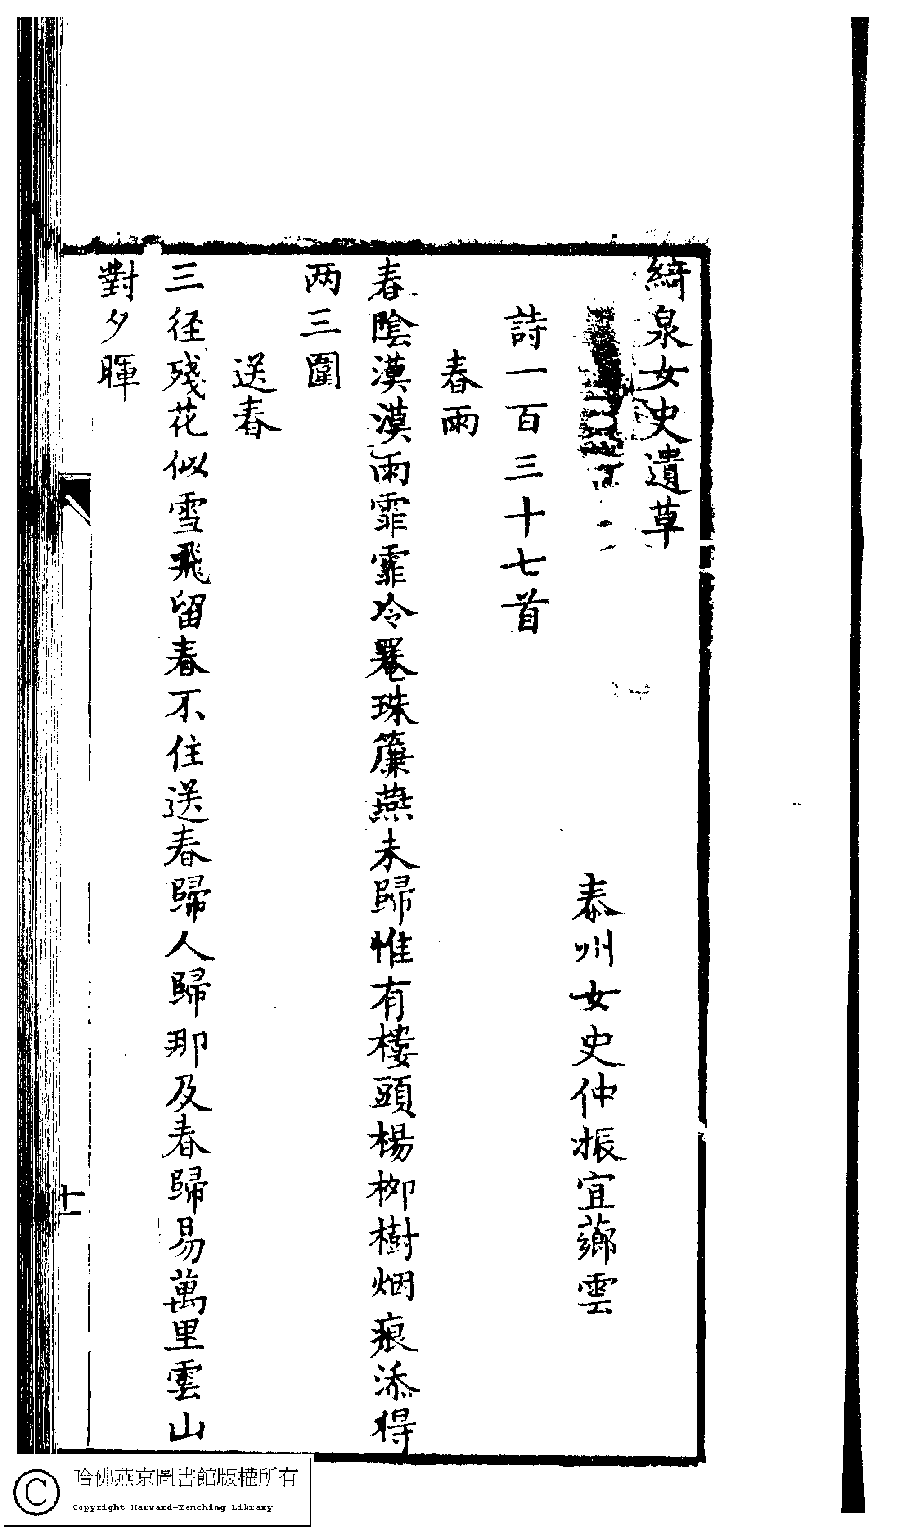 綺泉女史遺草
泰州女史仲振宜薌雲
詩一百三十七首
春雨
春陰漠漠雨霏霏冷罨珠簾燕未歸惟有樓頭楊柳樹烟痕添得
两三圍
送春
三径殘花似雪飛留春不住送春歸人歸那及春歸易萬里雲山
對夕暉
十一
哈佛燕京圖書館版權所有
Copyright Harvard-Yenching Library